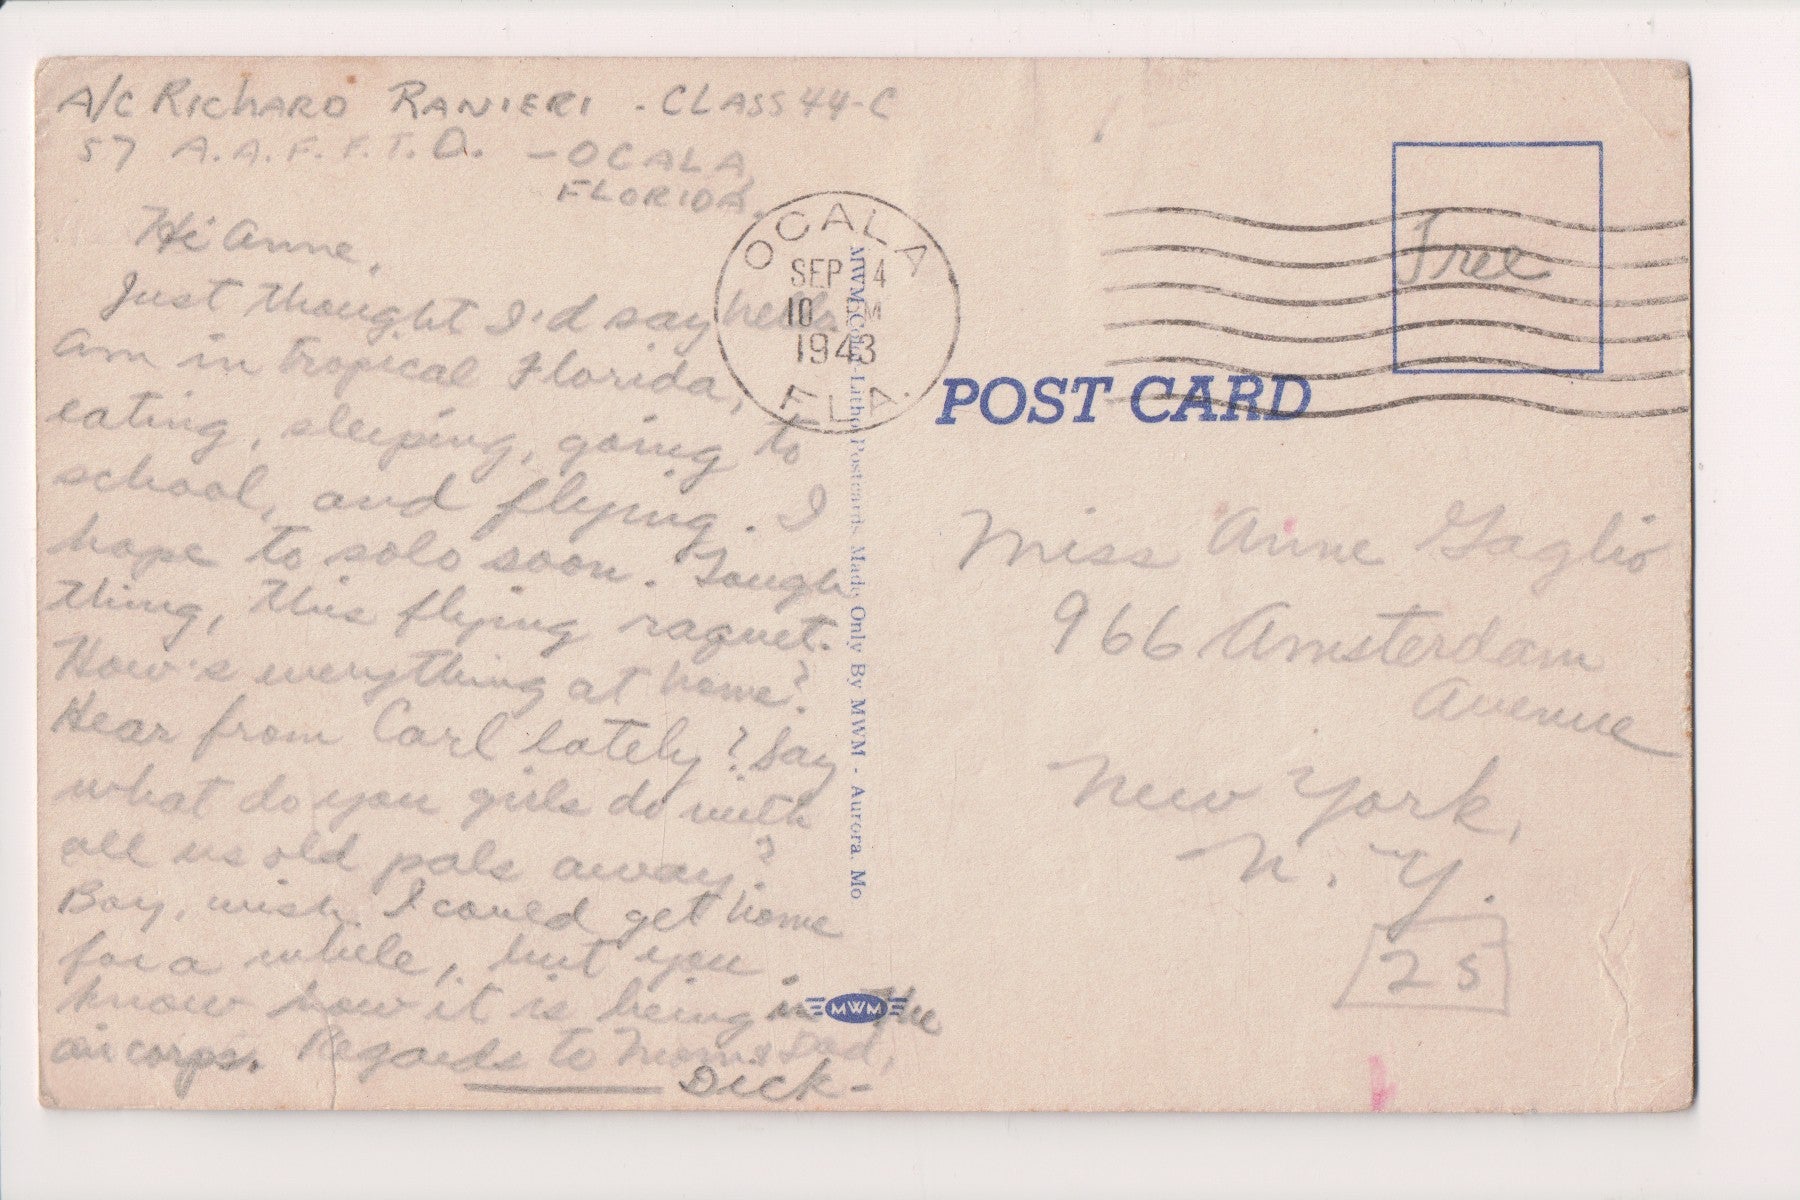 A/C RICHARD RANIERI - CLASS 44-C
57 A.A.F.F.T.D. - OCALA,
FLORIDA.
Hi Anne,
Just thought I'd say hello.
Am in tropical Florida,
eating, sleeping, going to
school, and flying. I
hope to solo soon. Tough
thing, this flying raquet.
How's everything at home?
Hear from Carl lately? Say
what do you girls do with
all us old pals away?
Boy, wish I could get home
for a while, but you
know how it is being in the
air corps. Regards to Mom & Dad,
Dick-
OCALA
SEP 14
10 PM
1943
FLA.
MWM Color-Litho Postcards Made Only By MWM - Aurora, Mo
MWM
Free
POST CARD
Miss Anne Gaglio
966 Amsterdam
Avenue
New York,
N. Y.
25